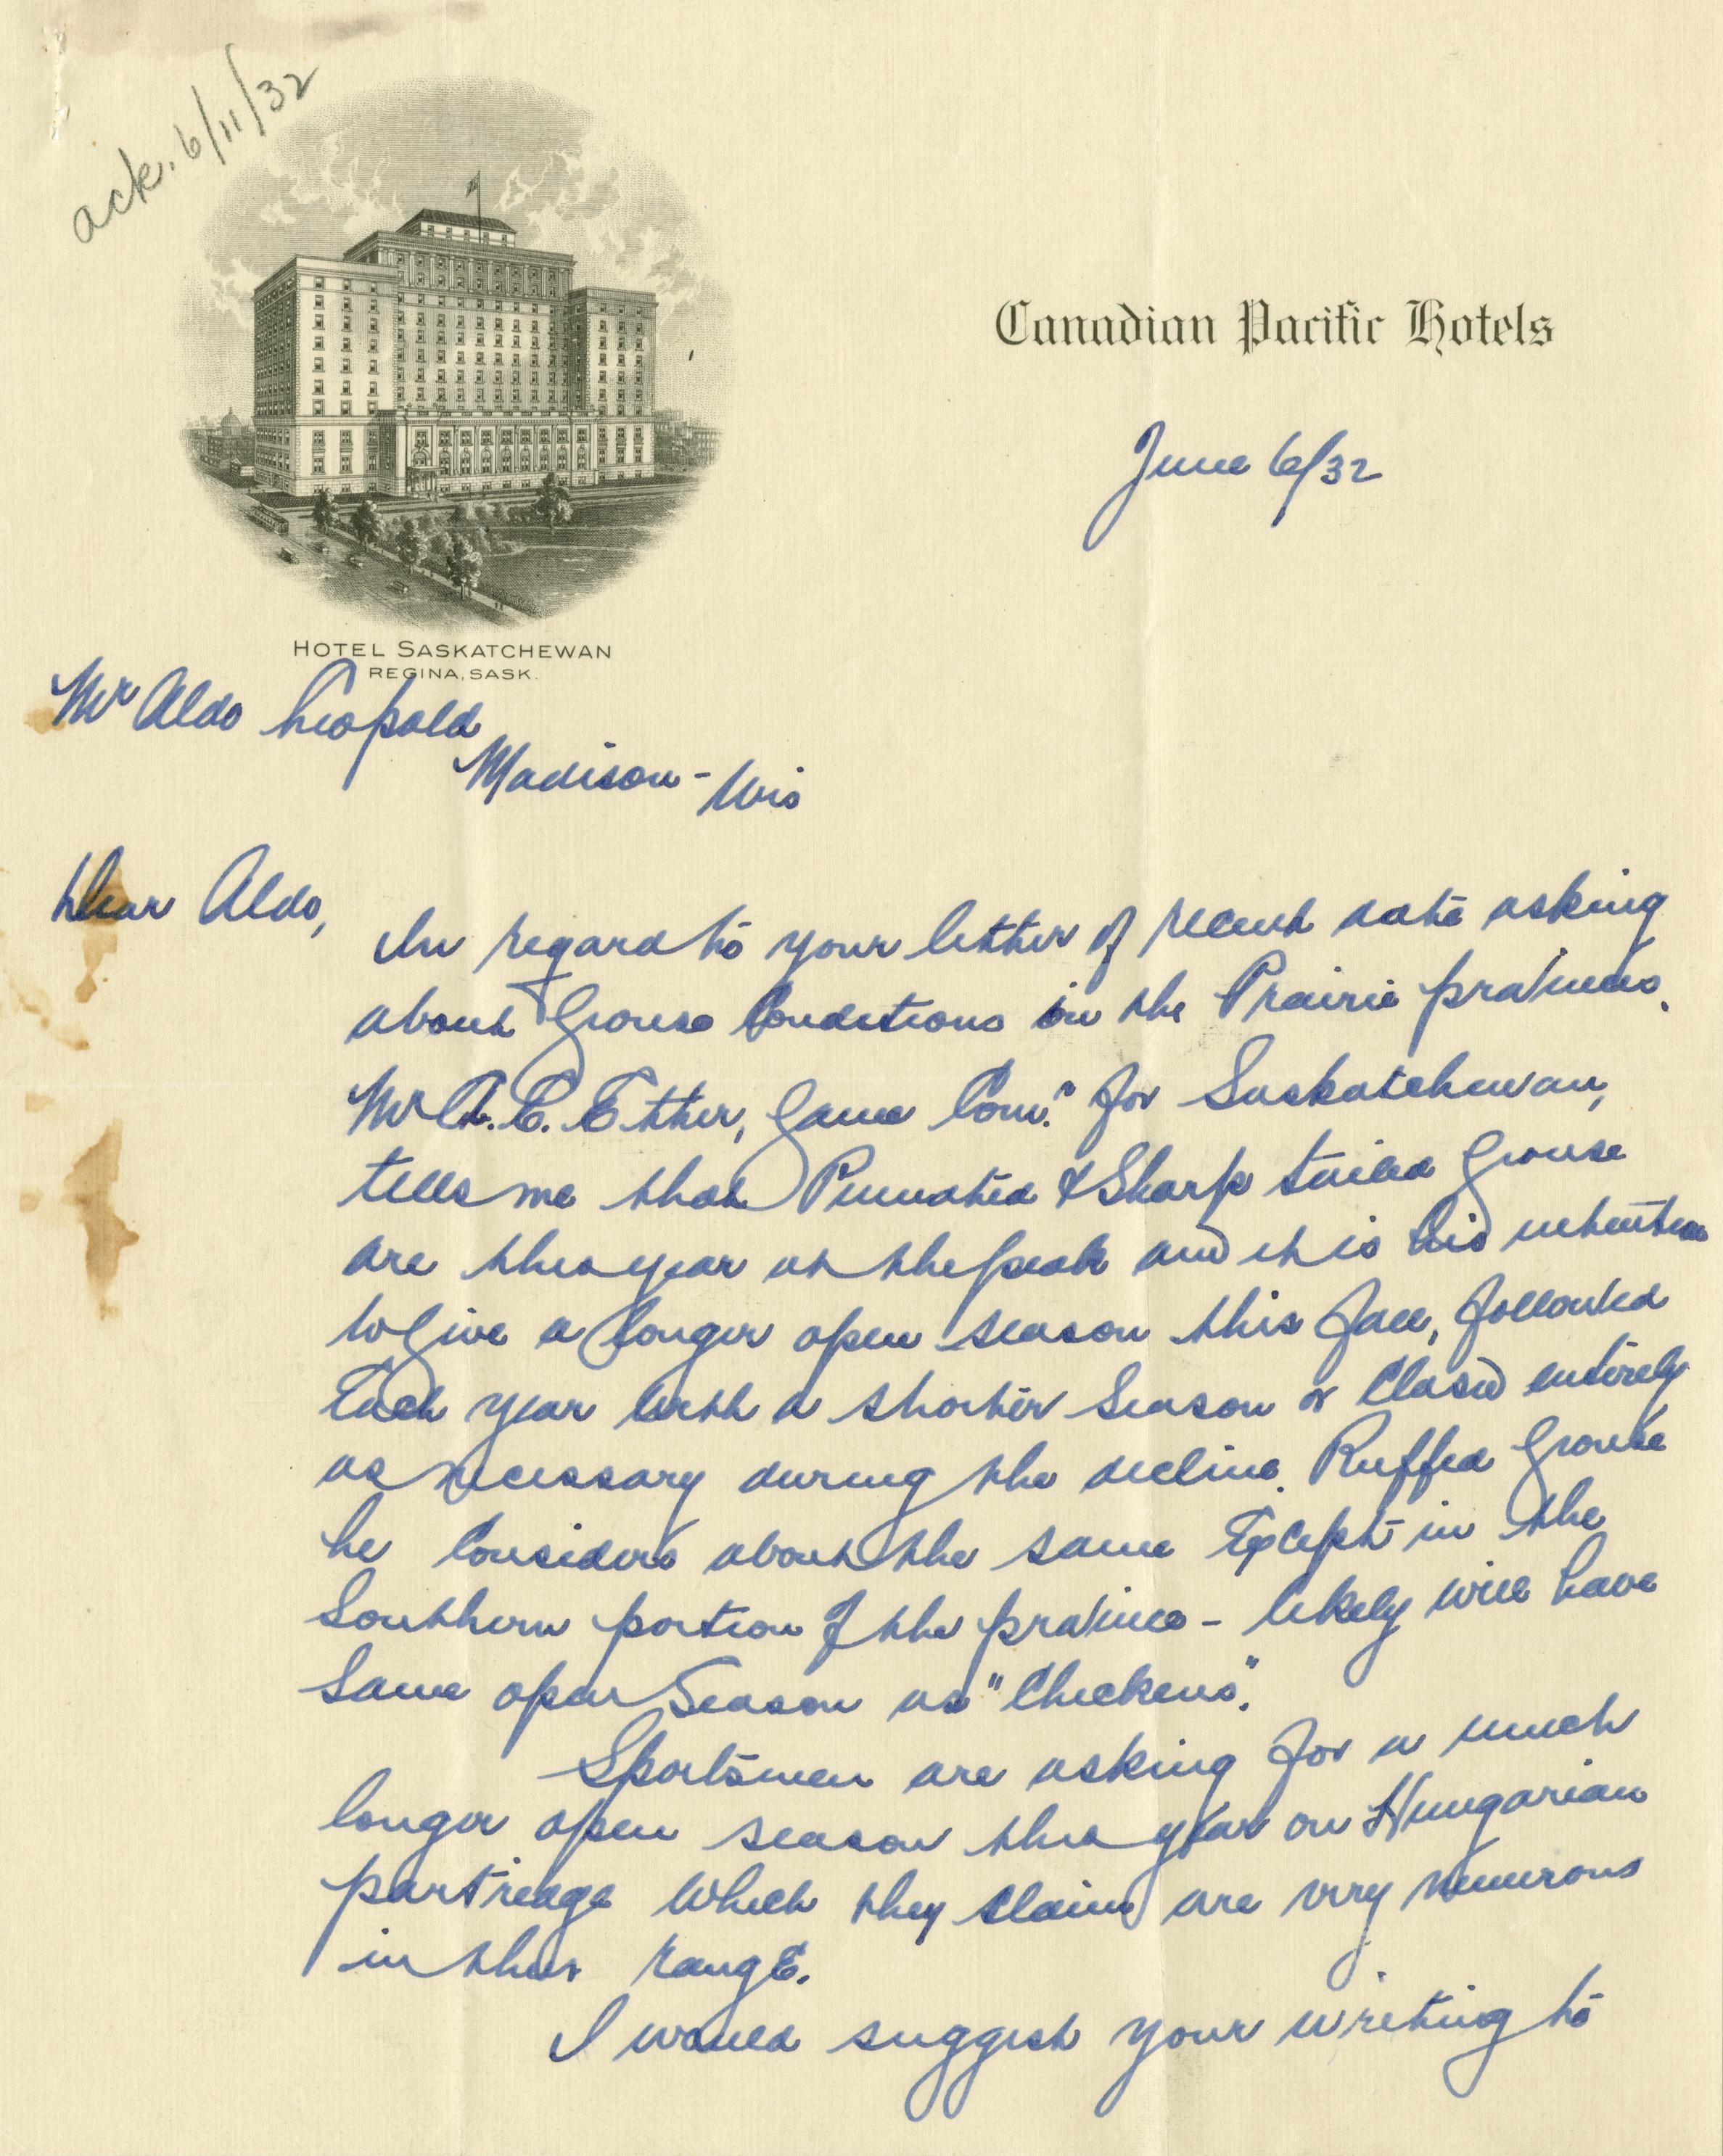 ack. 6/11/32
Canadian Pacific Hotels
June 6/32
HOTEL SASKATCHEWAN
REGINA, SASK.
Mr Aldo Leopold
Madison - Wis
Dear Aldo,
In regard to your letter of recent date asking
about Grouse Conditions in the Prairie provinces.
Mr A. E. Etter, Game Com.r for Saskatchewan,
tells me that Pinnated & Sharp tailed Grouse
are this year at the peak and it is his intention
to Give a longer open season this fall, followed
Each year with a shorter Season or Closed entirely
as necessary during the decline. Ruffed Grouse
he Considers about the same Except in the
Southern portion of the province - likely will have
same open Season as "Chickens".
Sportsmen are asking for a much
longer open season this year on Hungarian
partridge which they claim are very numerous
in their rangE.
I would suggest your writing to